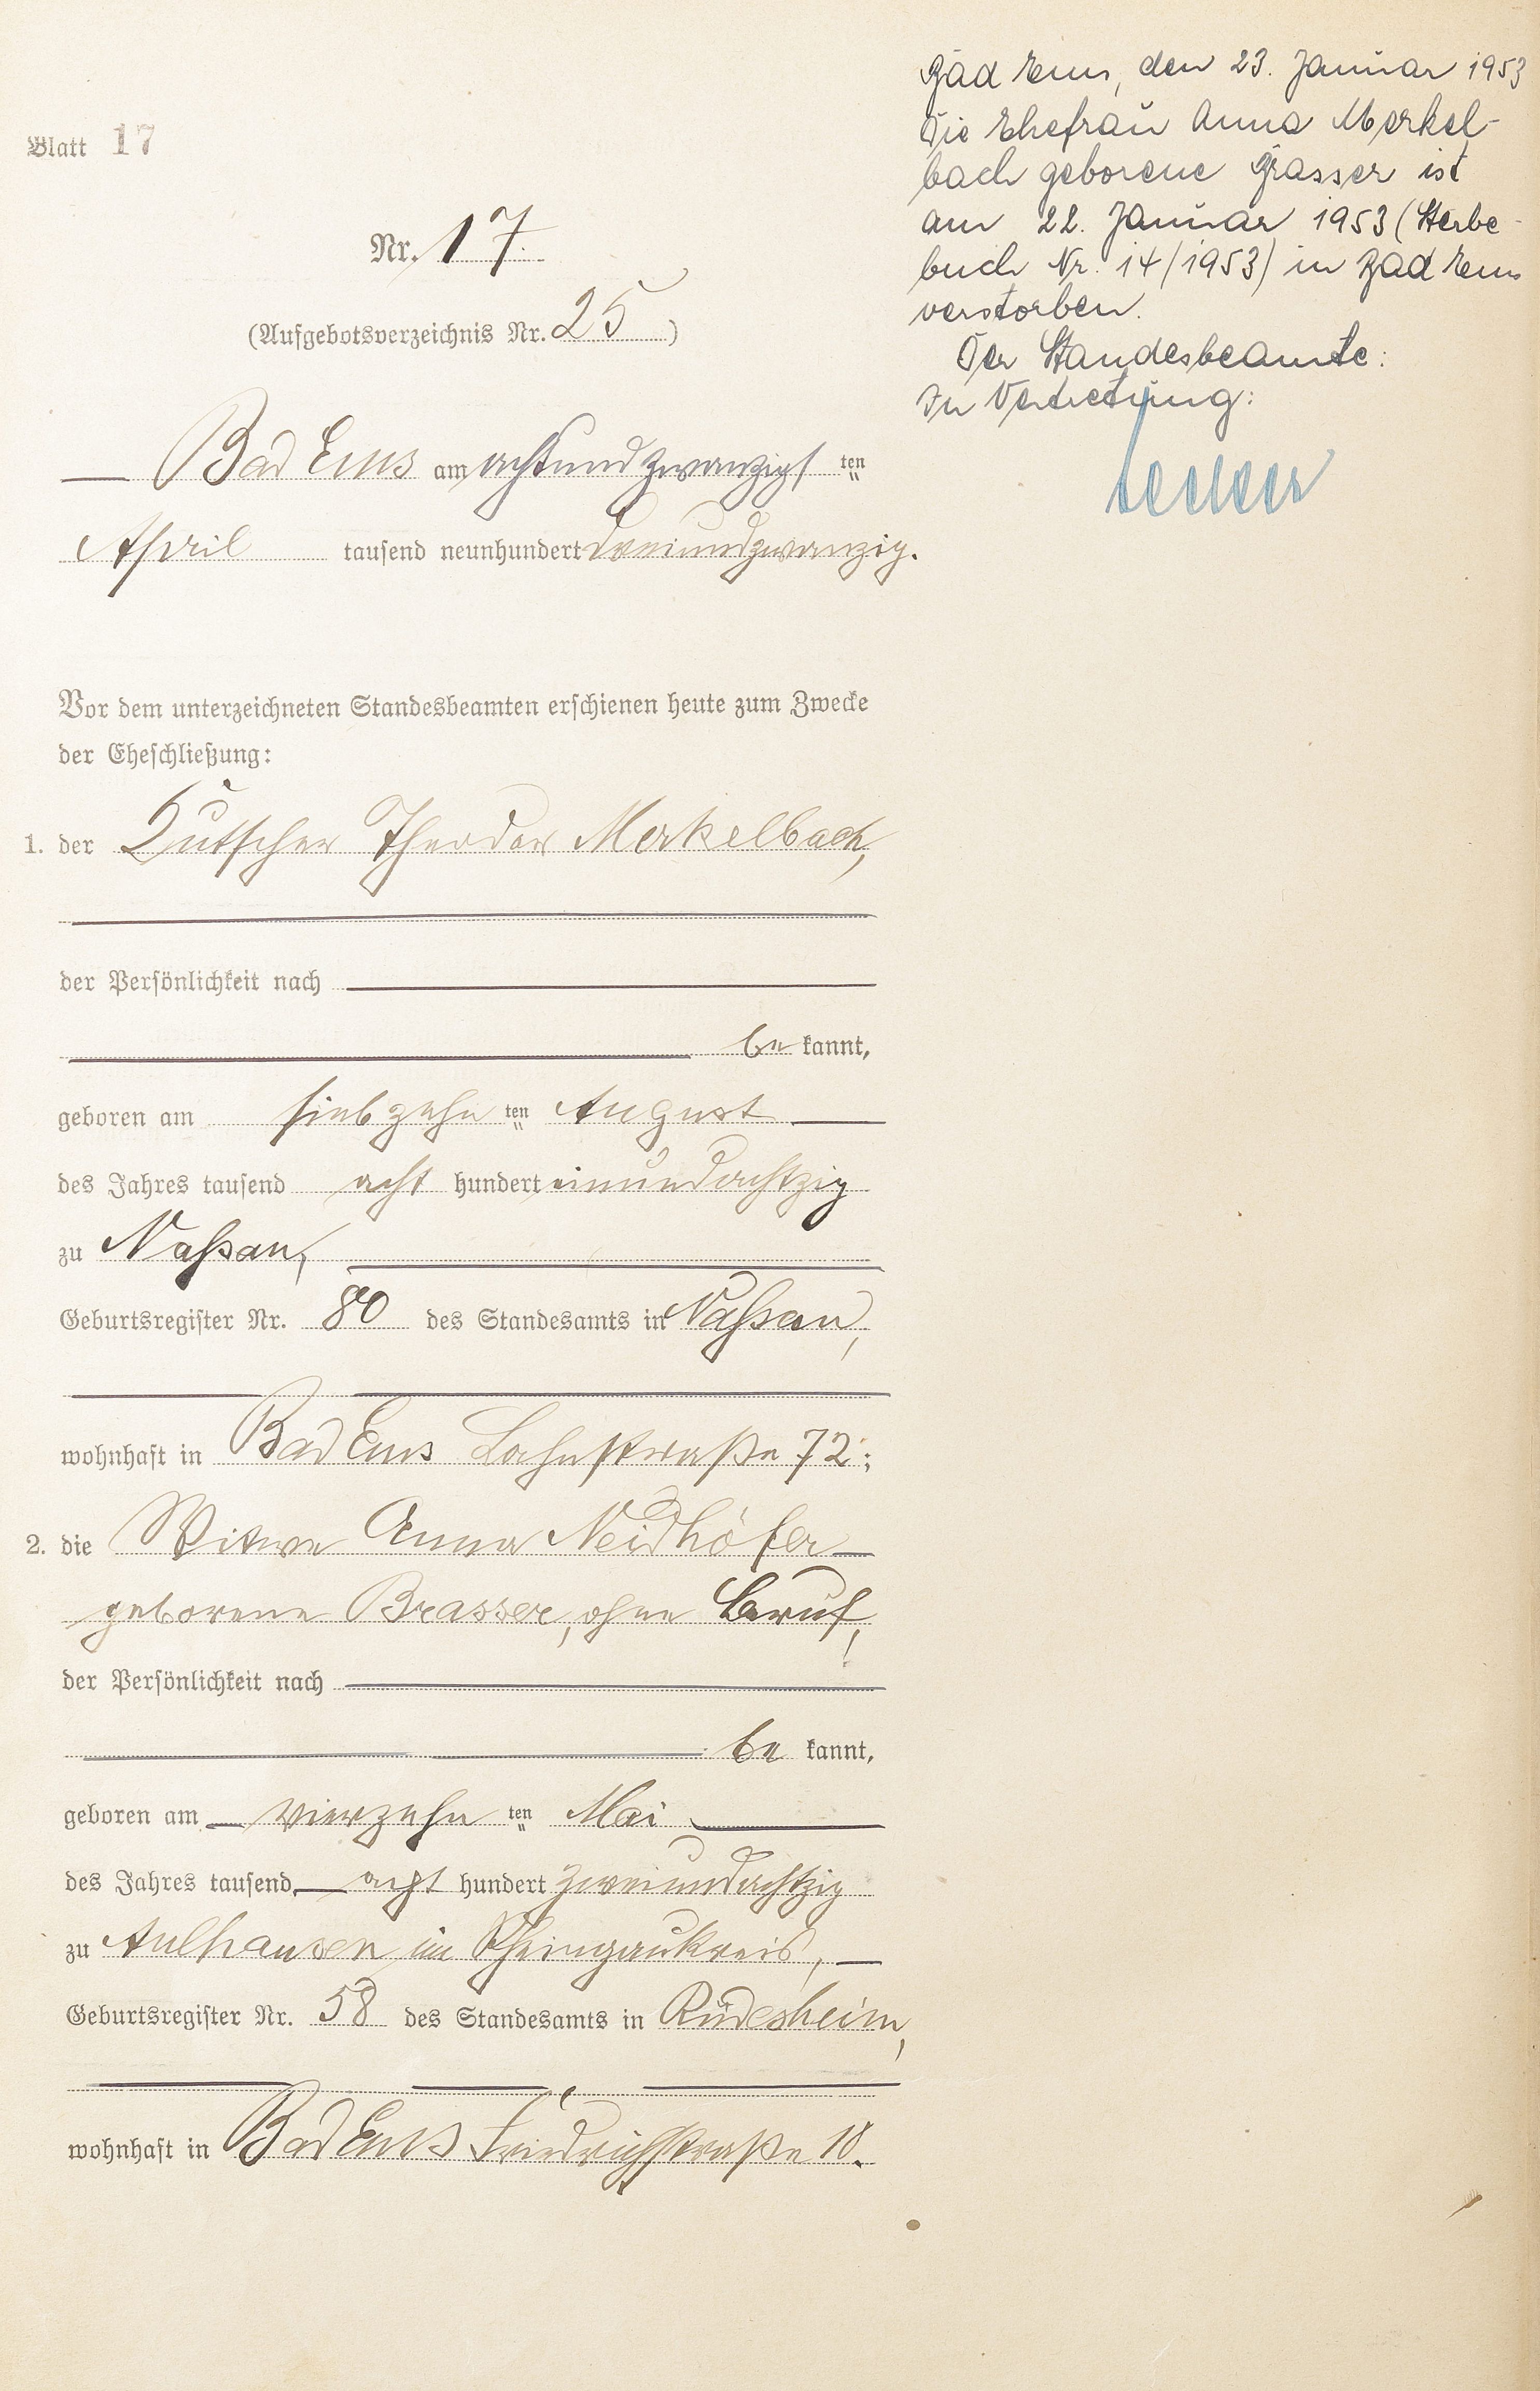 Blatt 17
Nr. 17.
(Aufgebotsverzeichnis Nr. 25)
Bad Ems am achtundzwanzigs ten
April tausend neunhundert dreiundzwanzig.
Vor dem unterzeichneten Standesbeamten erschienen heute zum Zwecke
der Eheschließung:
1. der Kutscher Theodor Merkelbach,
der Persönlichkeit nach
be kannt,
geboren am siebzehn ten August
des Jahres tausend acht hundert einundachtzig
zu Nassau,
Geburtsregister Nr. 80 des Standesamts in Nassau,
wohnhaft in Bad Ems Lahnstraße 72;
2. die Witwe Anna Neidhöfer
geborene Brasser, ohne Beruf,
der Persönlichkeit nach
be kannt,
geboren am vierzehn ten Mai
des Jahres tausend acht hundert zweiundachtzig
zu Aulhausen im Rheingaukreis,
Geburtsregister Nr. 58 des Standesamts in Rüdesheim,
wohnhaft in Bad Ems Friedrichstraße 10.
Bad Ems, den 23. Januar 1953
Die Ehefrau Anna Merkel-
bach geborene Brasser ist
am 22. Januar 1953 (Sterbe-
buch Nr. 14/1953) in Bad Ems
verstorben.
Der Standesbeamte:
In Vertretung: